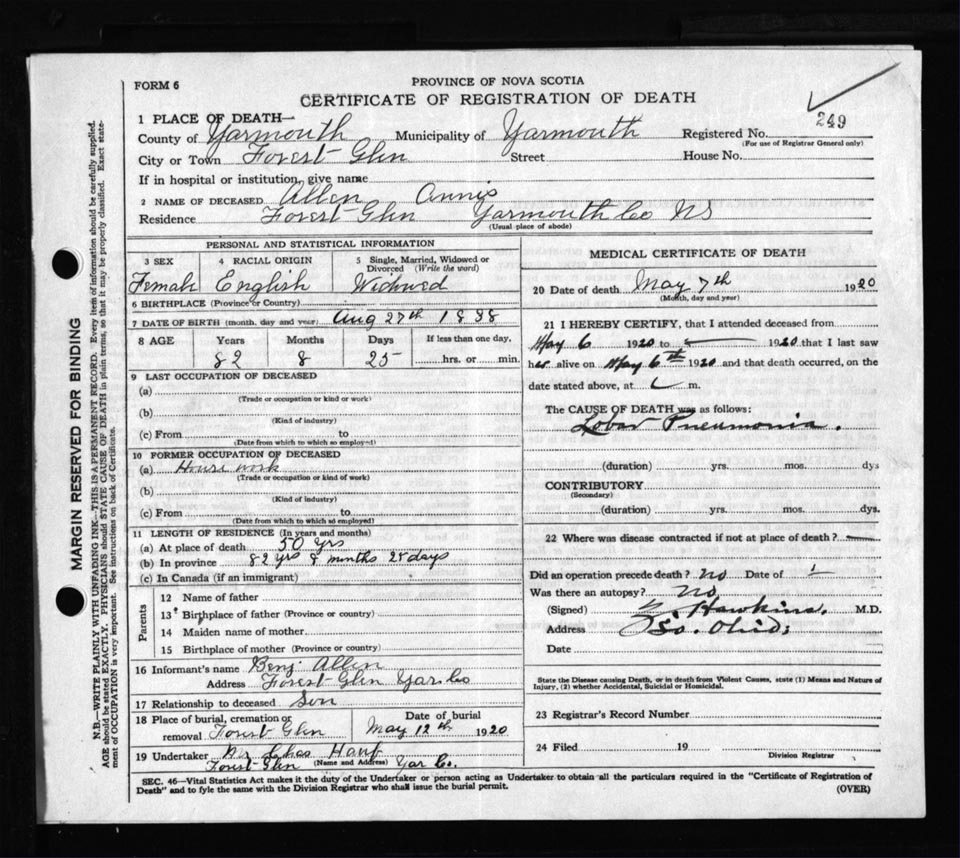 FORM 6
PROVINCE OF NOVA SCOTIA
CERTIFICATE OF REGISTRATION OF DEATH
249
1 PLACE OF DEATH—
County of Yarmouth Municipality of Yarmouth Registered No.
(For use of Registrar General only)
City or Town Forest Glen Street House No.
If in hospital or institution, give name
2 NAME OF DECEASED Allen Annis
Residence Forest Glen Yarmouth Co NS
(Usual place of abode)
PERSONAL AND STATISTICAL INFORMATION
3 SEX 4 RACIAL ORIGIN 5 Single, Married, Widowed or Divorced (Write the word)
Female English Widowed
6 BIRTHPLACE (Province or Country)
7 DATE OF BIRTH (month, day and year) Aug 27th 1838
8 AGE Years Months Days If less than one day,
82 8 25 hrs. or min.
9 LAST OCCUPATION OF DECEASED
(a)
(Trade or occupation or kind or work)
(b)
(Kind of industry)
(c) From to
(Date from which to which so employed)
10 FORMER OCCUPATION OF DECEASED
(a) House work
(Trade or occupation or kind of work)
(b)
(Kind of industry)
(c) From to
(Date from which to which so employed)
11 LENGTH OF RESIDENCE (In years and months)
(a) At place of death 50 yrs
(b) In province 82 yrs 8 months 25 days
(c) In Canada (if an immigrant)
Parents
12 Name of father
13 Birthplace of father (Province or country)
14 Maiden name of mother
15 Birthplace of mother (Province or country)
16 Informant's name Benj Allen
Address Forest Glen Yar Co
17 Relationship to deceased Son
18 Place of burial, cremation or removal Forest Glen Date of burial May 12th 1920
19 Undertaker
(Name and Address)
Forest Glen Yar Co.
MEDICAL CERTIFICATE OF DEATH
20 Date of death May 7th 1920
(Month, day and year)
21 I HEREBY CERTIFY, that I attended deceased from
May 6 1920 to 1920 that I last saw
her alive on May 6th 1920 and that death occurred, on the
date stated above, at m.
The CAUSE OF DEATH was as follows:
Lobar Pneumonia.
(duration) yrs. mos. dys
CONTRIBUTORY
(Secondary)
(duration) yrs. mos. dys.
22 Where was disease contracted if not at place of death?
Did an operation precede death? No Date of
Was there an autopsy? No
(Signed) Hawkins, M.D.
Address So. Ohio,
Date
State the Disease causing Death, or in death from Violent Causes, state (1) Means and Nature of
Injury, (2) whether Accidental, Suicidal or Homicidal.
23 Registrar's Record Number
24 Filed 19
Division Registrar
SEC. 46—Vital Statistics Act makes it the duty of the Undertaker or person acting as Undertaker to obtain all the particulars required in the "Certificate of Registration of
Death" and to fyle the same with the Division Registrar who shall issue the burial permit.
(OVER)
MARGIN RESERVED FOR BINDING
N.B.—WRITE PLAINLY WITH UNFADING INK—THIS IS A PERMANENT RECORD. Every item of information should be carefully supplied.
AGE should be stated EXACTLY. PHYSICIANS should STATE CAUSE OF DEATH in plain terms, so that it may be properly classified. Exact statement of OCCUPATION is very important. See instructions on back of Certificate.